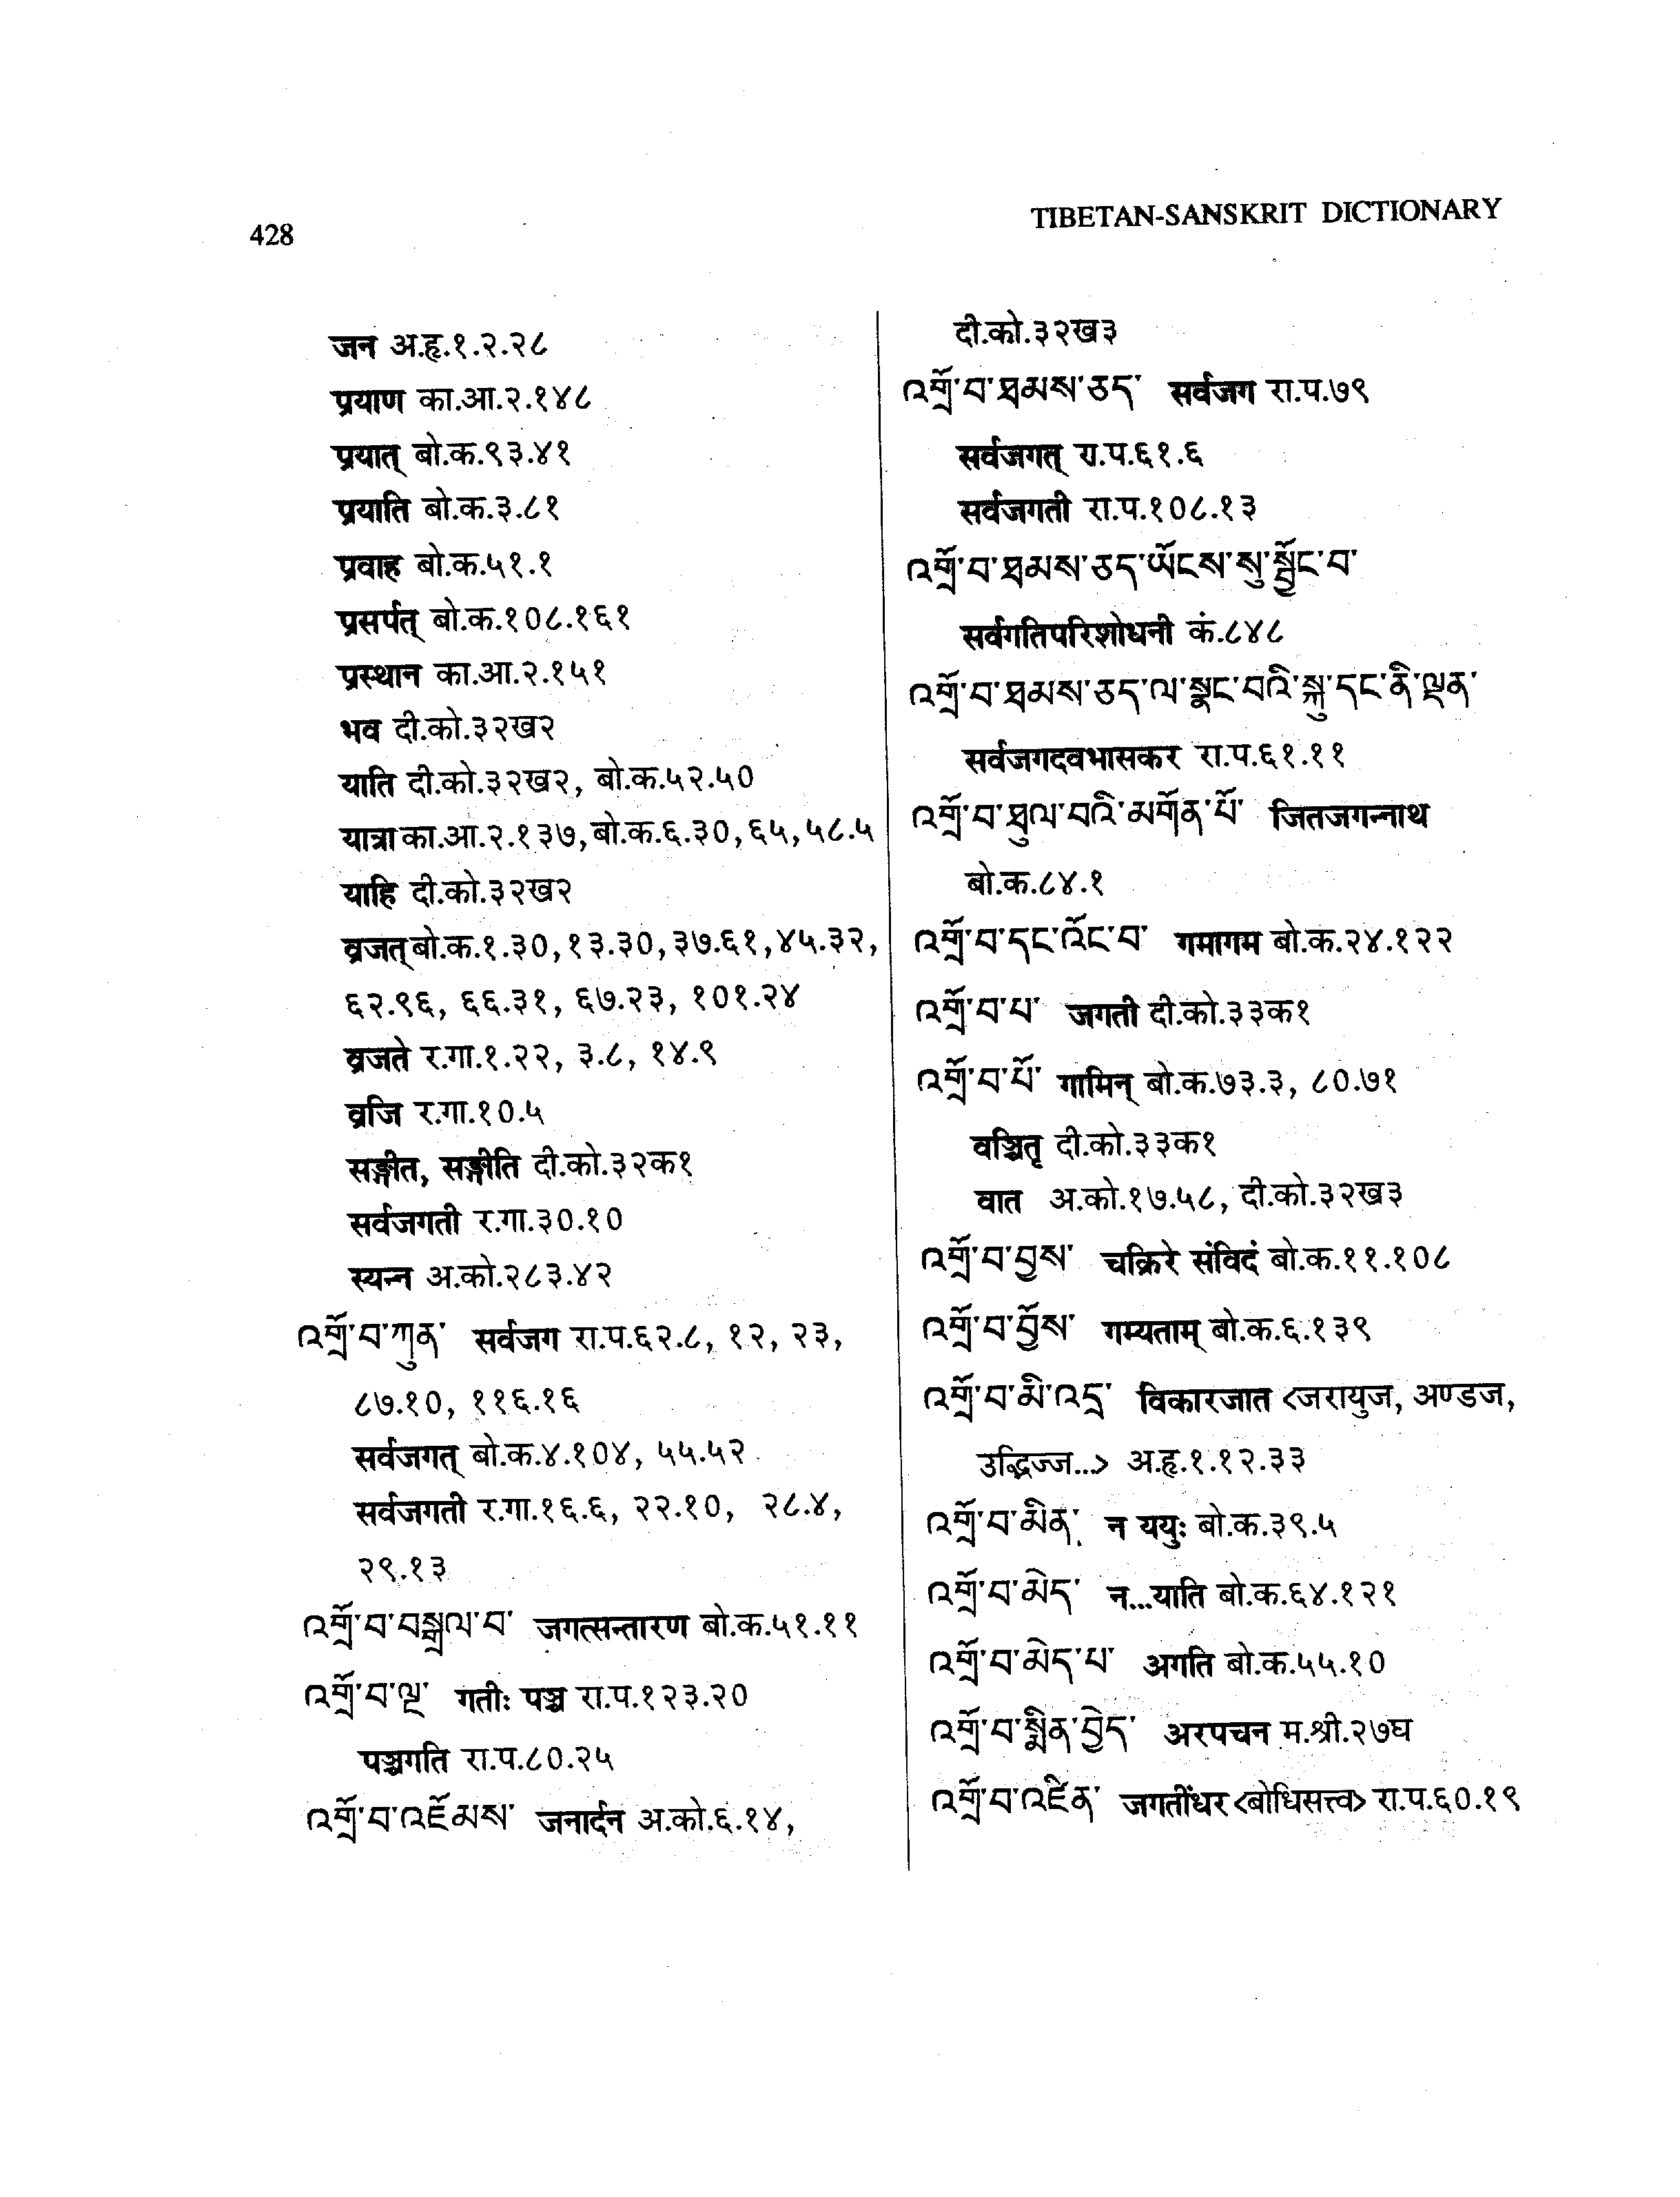 428
TIBETAN-SANSKRIT DICTIONARY
जन अ.हृ.१.२.२८
प्रयाण का.आ.२.१४८
प्रयात् बो.क.९३.४१
प्रयाति बो.क.३.८१
प्रवाह बो.क.५१.१
प्रसर्पत् बो.क.१०८.१६१
प्रस्थान का.आ.२.१५१
भव दी.को.३२ख२
याति दी.को.३२ख२, बो.क.५२.५०
यात्रा का.आ.२.१३७, बो.क.६.३०, ६५, ५८.५
याहि दी.को.३२ख२
व्रजत् बो.क.१.३०, १३.३०, ३७.६१, ४५.३२,
६२.९६, ६६.३१, ६७.२३, १०१.२४
व्रजते र.गा.१.२२, ३.८, १४.९
व्रजि र.गा.१०.५
सङ्गीत, सङ्गीति दी.को.३२क१
सर्वजगती र.गा.३०.१०
स्यन्न अ.को.२८३.४२
འགྲོ་བ་ཀུན་ सर्वजग रा.प.६२.८, १२, २३,
८७.१०, ११६.१६
सर्वजगत् बो.क.४.१०४, ५५.५२
सर्वजगती र.गा.१६.६, २२.१०, २८.४,
२९.१३
འགྲོ་བ་བསྒྲལ་བ་ जगत्सन्तारण बो.क.५१.११
འགྲོ་བ་ལྔ་ गतीः पञ्च रा.प.१२३.२०
पञ्चगति रा.प.८०.२५
འགྲོ་བ་འཇོམས་ जनार्दन अ.को.६.१४,
दी.को.३२ख३
འགྲོ་བ་ཐམས་ཅད་ सर्वजग रा.प.७९
सर्वजगत् रा.प.६१.६
सर्वजगती रा.प.१०८.१३
འགྲོ་བ་ཐམས་ཅད་ཡོངས་སུ་སྦྱོང་བ་
सर्वगतिपरिशोधनी कं.८४८
འགྲོ་བ་ཐམས་ཅད་ལ་སྣང་བའི་སྐུ་དང་ནི་ལྡན་
सर्वजगदवभासकर रा.प.६१.११
འགྲོ་བ་ཐུལ་བའི་མགོན་པོ་ जितजगन्नाथ
बो.क.८४.१
འགྲོ་བ་དང་འོང་བ་ गमागम बो.क.२४.१२२
འགྲོ་བ་པ་ जगती दी.को.३३क१
འགྲོ་བ་པོ་ गामिन् बो.क.७३.३, ८०.७१
वञ्चितृ दी.को.३३क१
वात अ.को.१७.५८, दी.को.३२ख३
འགྲོ་བ་བྱས་ चक्रिरे संविदं बो.क.११.१०८
འགྲོ་བ་བྱོས་ गम्यताम् बो.क.६.१३९
འགྲོ་བ་མི་འདྲ་ विकारजात <जरायुज, अण्डज,
उद्भिज्ज...> अ.हृ.१.१२.३३
འགྲོ་བ་མིན་ न ययुः बो.क.३९.५
འགྲོ་བ་མེད་ न...याति बो.क.६४.१२१
འགྲོ་བ་མེད་པ་ अगति बो.क.५५.१०
འགྲོ་བ་སྨིན་བྱེད་ अरपचन म.श्री.२७घ
འགྲོ་བ་འཛིན་ जगतींधर <बोधिसत्त्व> रा.प.६०.१९